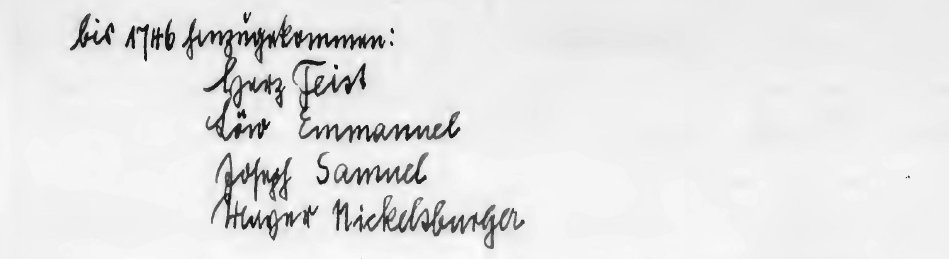 bis 1746 hinzugekommen:
Herz Feist
Löw Emmanuel
Joseph Samuel
Mayer Nickelsburger